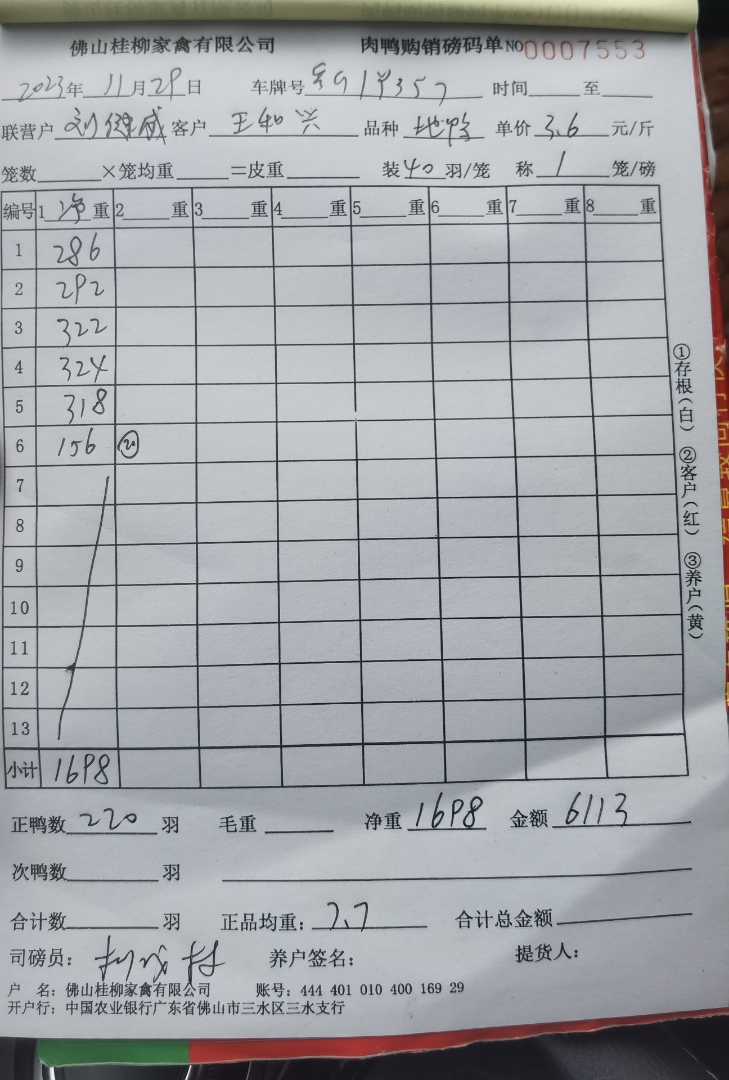 佛山桂柳家禽有限公司 肉鸭购销磅码单 NO0007553
2023年11月29日 车牌号 357 时间 至
联营户 刘继威 客户 王和兴 品种 单价 3.6 元/斤
笼数 ×笼均重 =皮重 装40羽/笼 称 1 笼/磅
编号 1净重 2 重 3 重 4 重 5 重 6 重 7 重 8 重
1 286
2 292
3 322
4 324
5 318
6 156 20
7
8
9
10
11
12
13
小计 1698
正鸭数 220 羽 毛重 净重 1698 金额 6113
次鸭数 羽
合计数 羽 正品均重: 7.7 合计总金额
司磅员: 养户签名: 提货人:
户 名: 佛山桂柳家禽有限公司 账号: 444 401 010 400 169 29
开户行: 中国农业银行广东省佛山市三水区三水支行
①存根(白) ②客户(红) ③养户(黄)